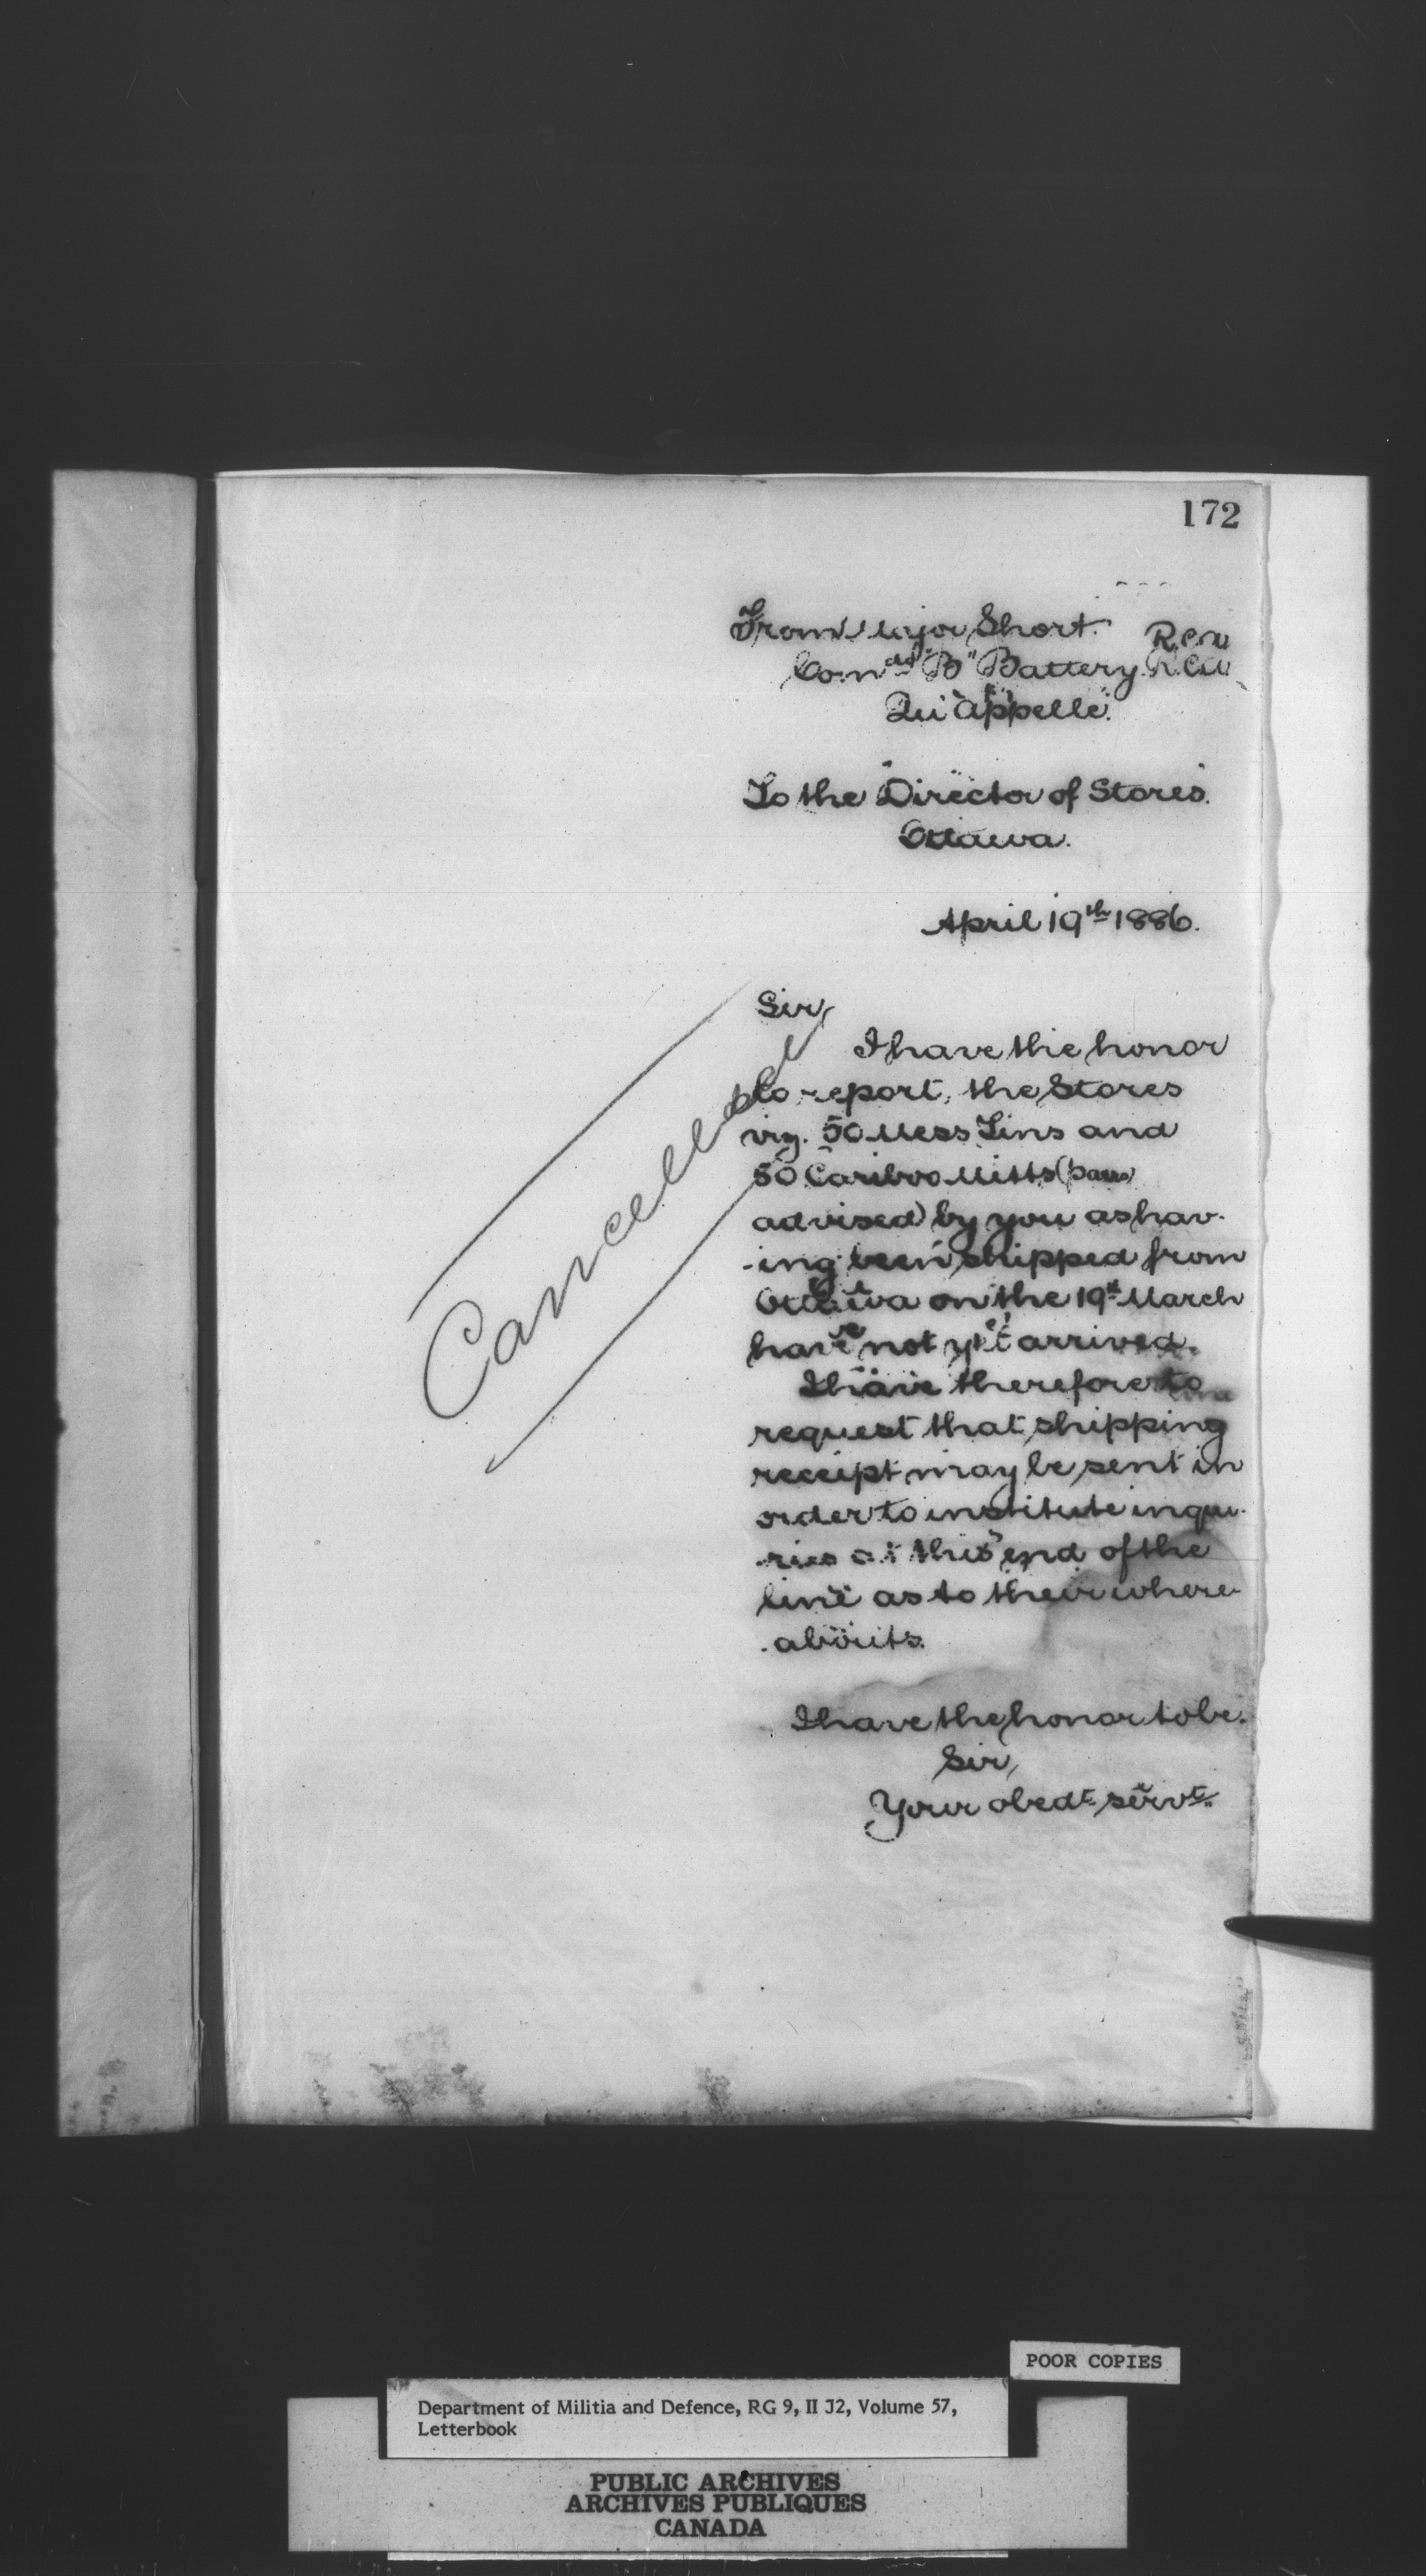 172
From Major Short.
Comdg "B" Battery R.C.A
Qu'appelle.
To the Director of Stores.
Ottawa.
April 19th 1886.
Sir,
I have the honor
to report, the Stores
viz. 50 Mess Tins and
50 Cariboo Mitts (pairs
advised) by you as hav-
-ing been shipped from
Ottawa on the 19th March
have not yet arrived.
I have therefore to
request that shipping
receipt may be sent in
order to institute inqui-
-ries at this end of the
line as to their where-
-abouts.
I have the honor to be.
Sir,
Your obedt servt
Cancelled
POOR COPIES
Department of Militia and Defence, RG 9, II J2, Volume 57,
Letterbook
PUBLIC ARCHIVES
ARCHIVES PUBLIQUES
CANADA